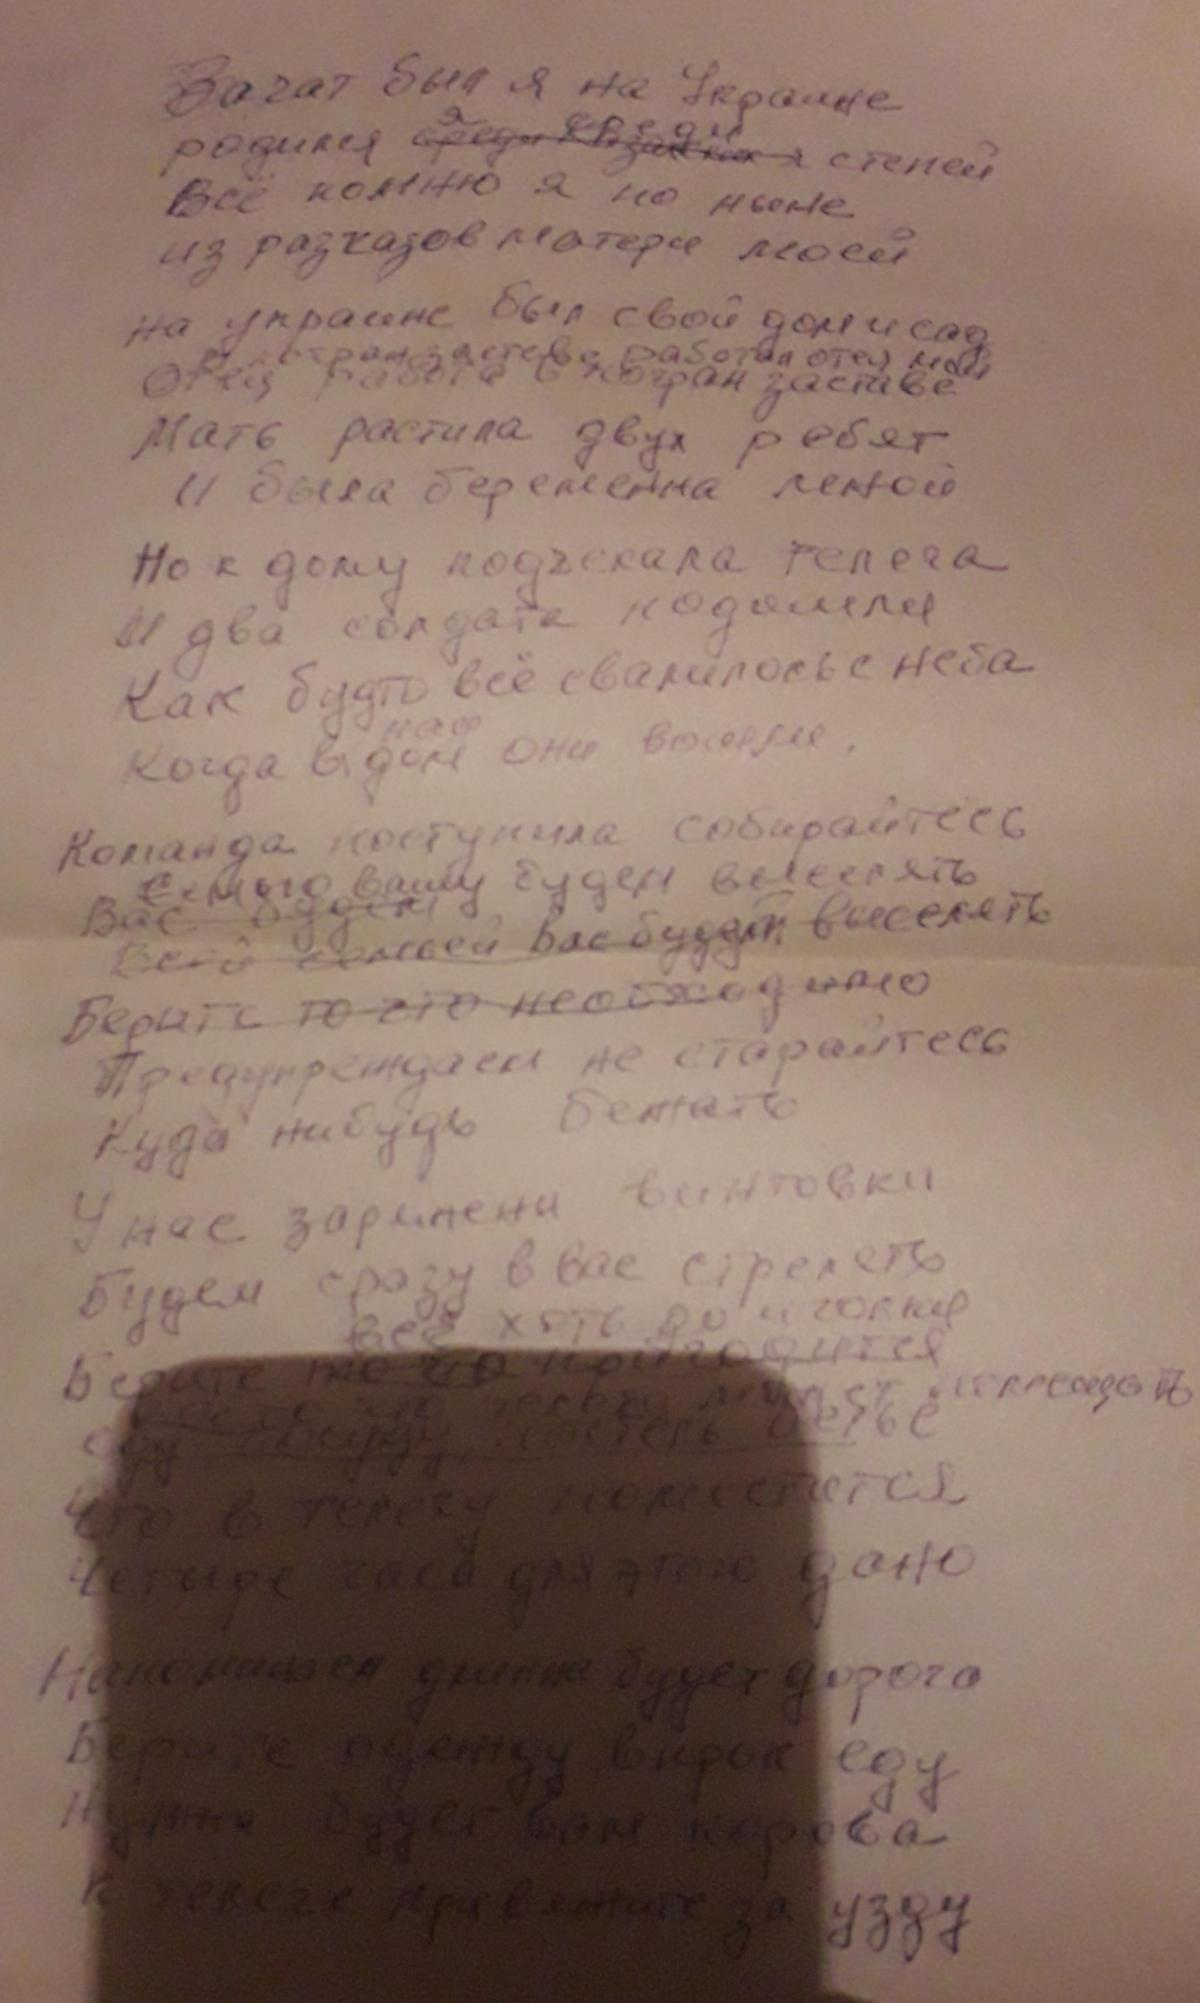 Зачат был я на Украине
родился я среди степей
Всё помню я по ныне
из разказов матери моей
на украине был свой дом и сад
В погран заставе работал отец мой
Отец работа в погран заставе
Мать растила двух ребят
И была беременна мной
Но к дому подъехала телега
И два солдата подошли
Как будто всё свалилось с неба
наш
Когда в дом они вошли.
Команда поступила собирайтесь
Семью вашу будем выселять
Вас будем
Всей семьей вас будем выселять
Берите то что необходимо
Предупреждаем не старайтесь
Куда нибудь бежать
У нас заряжени винтовки
Будем сразу в вас стрелеть
всё хоть до иголки
Берите то что пригодится
телега может
еду посуду
Что в телегу поместится
Четыре часа для этого дано
Напоминаем длинна будет дорога
Берите одежду впрок еду
Нужна будет вам корова
К телеге привяжите за узду